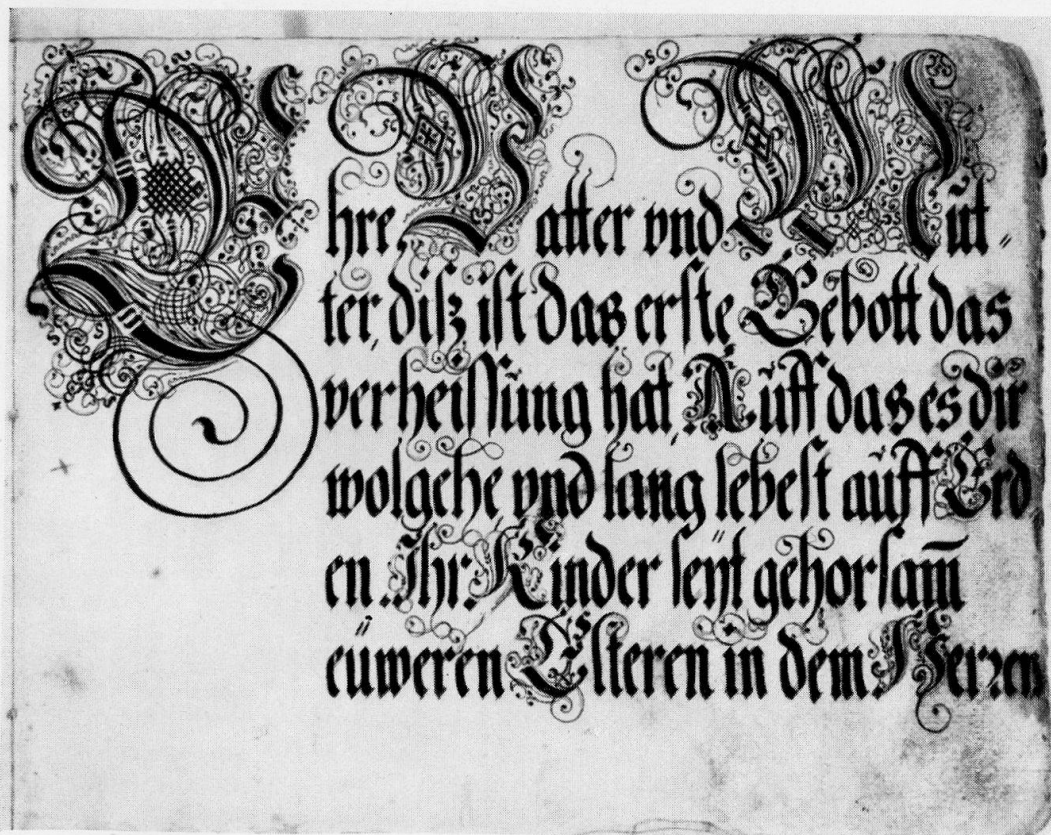 Ehre Vatter vnd Mūt⸗
ter, diſz iſt das erſte Gebott das
verheiſſūng hat, Aūff das es dir
wolgehe vnd lang lebeſt aūff Erd
en. Ihr Kinder ſeÿt gehorſam̄
eüweren Elteren in dem Herren